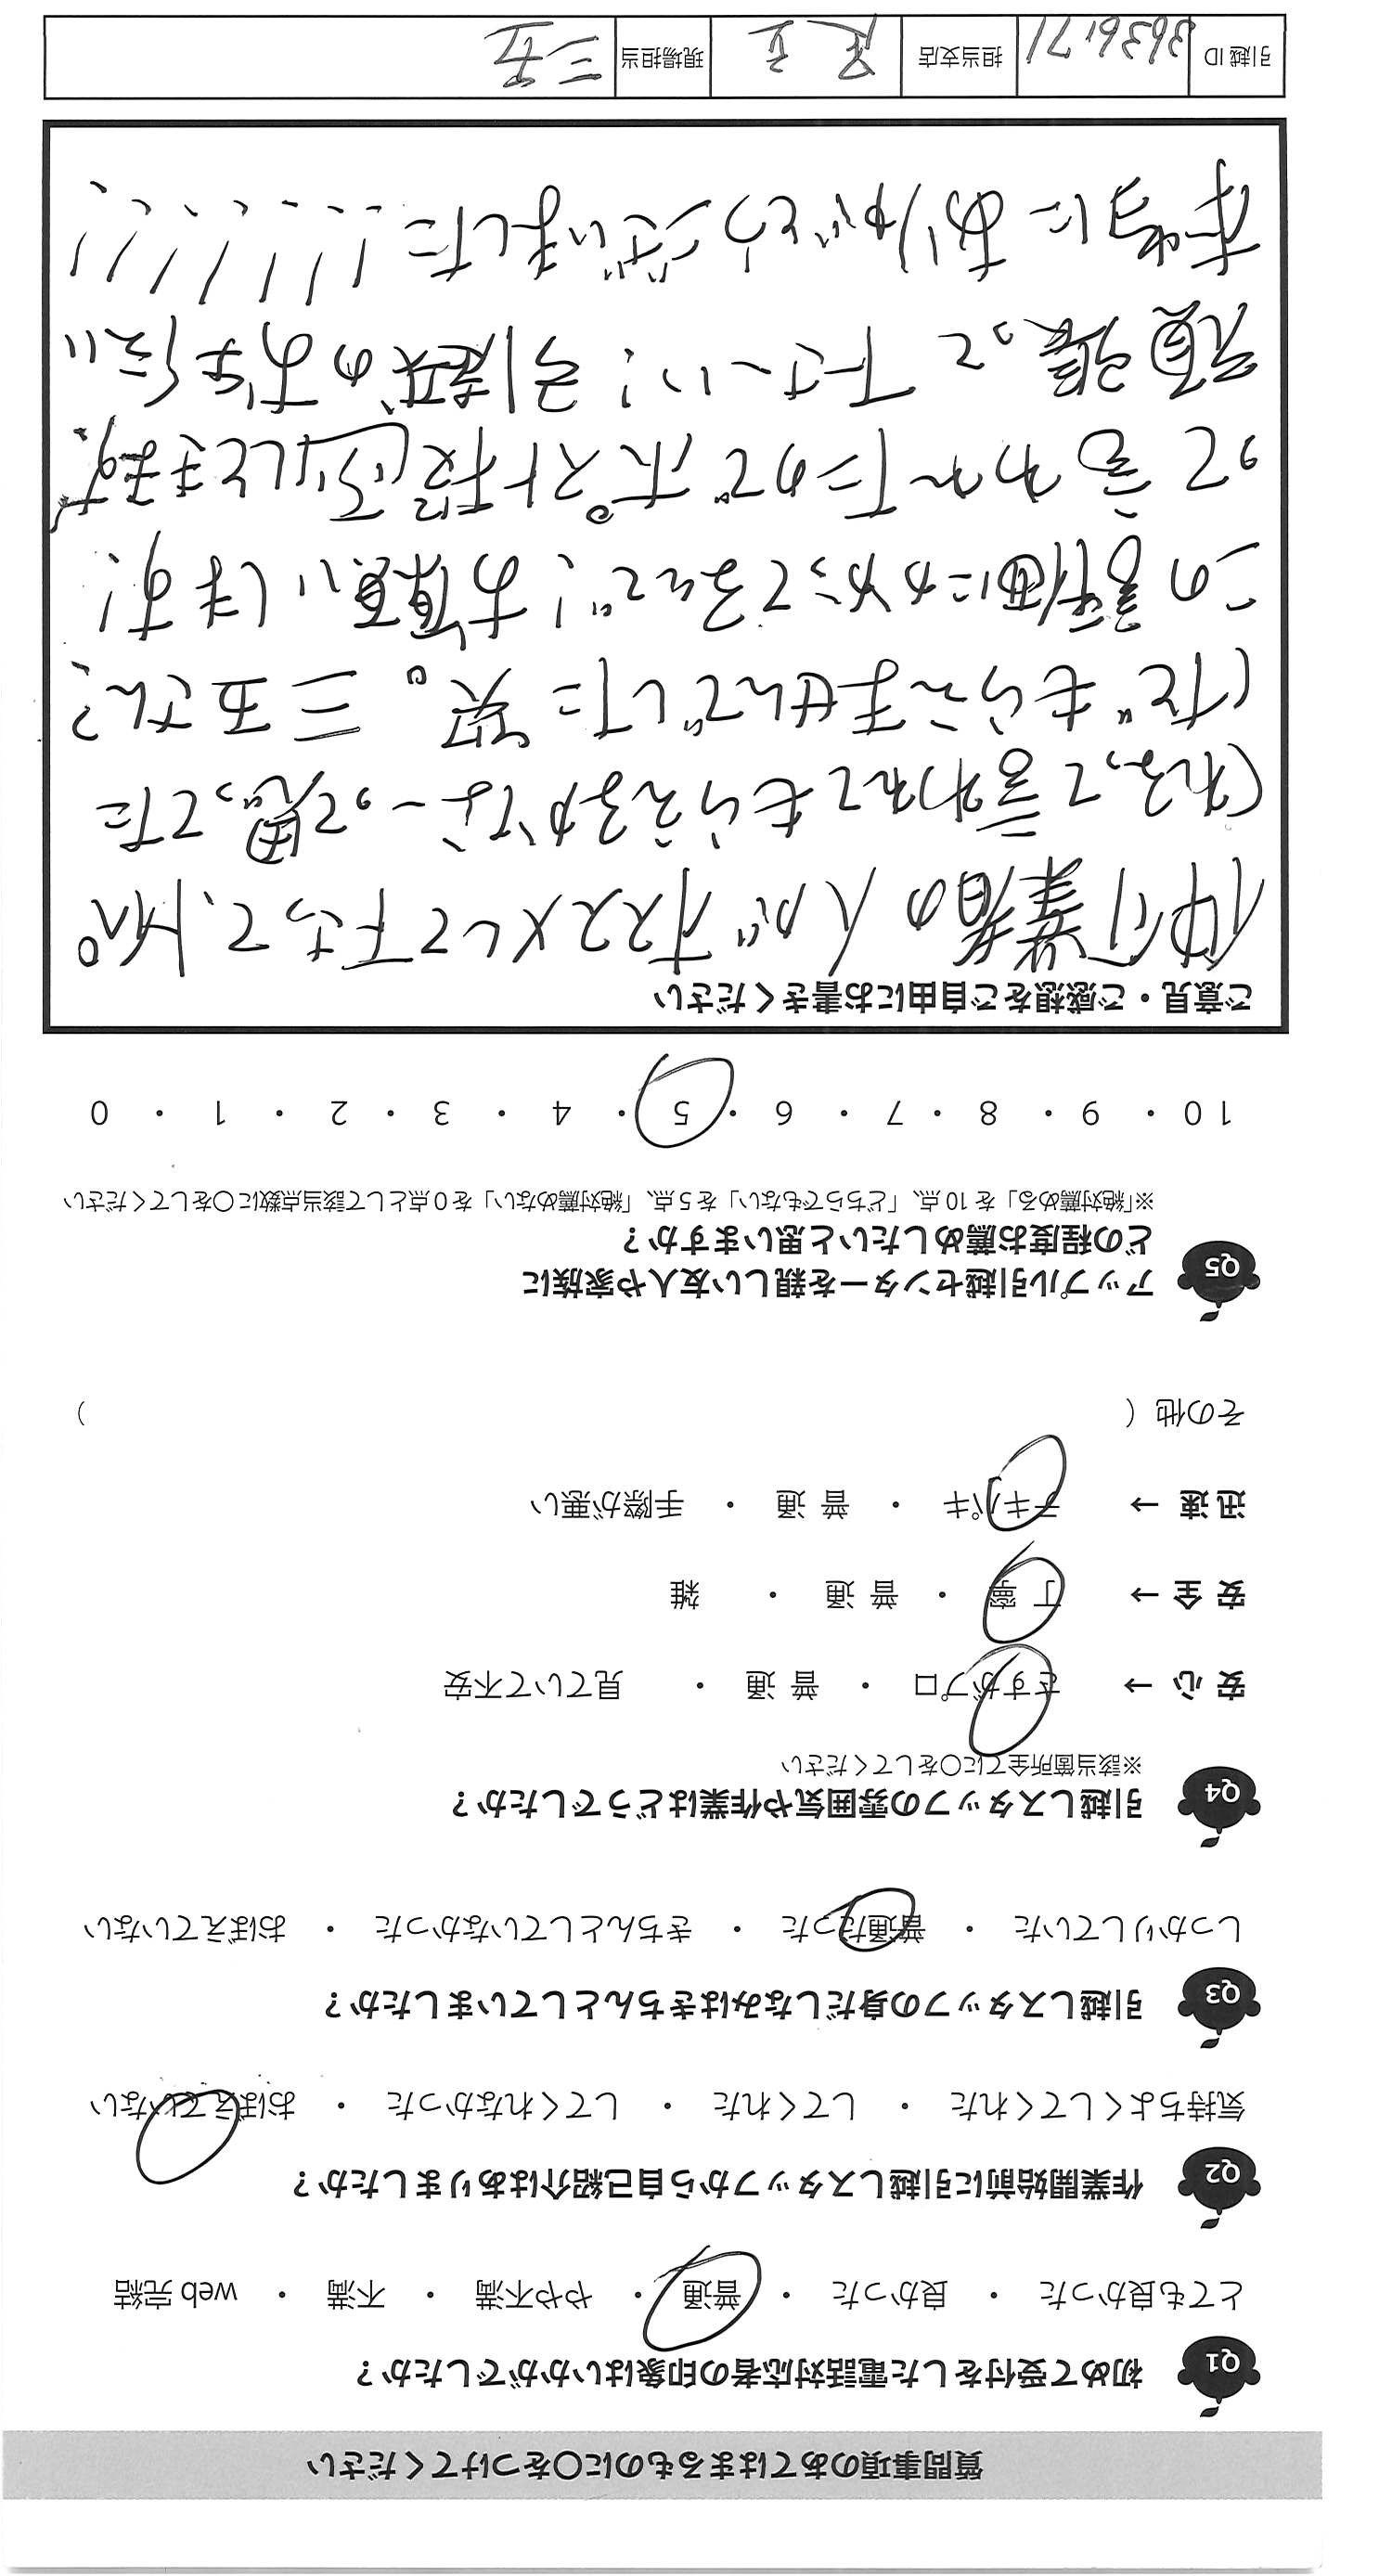 質問事項のあてはまるものに〇をつけてください
Q1 初めて受付をした電話対応者の印象はいかがでしたか？
とても良かった ・ 良かった ・ 普通 ・ やや不満 ・ 不満 ・ web 完結
Q2 作業開始前に引越しスタッフから自己紹介はありましたか？
気持ちよくしてくれた ・ してくれた ・ してくれなかった ・ おぼえていない
Q3 引越しスタッフの身だしなみはきちんとしていましたか？
しっかりしていた ・ 普通だった ・ きちんとしていなかった ・ おぼえていない
Q4 引越しスタッフの雰囲気や作業はどうでしたか？
※該当箇所全てに〇をしてください
安心→ さすがプロ ・ 普通 ・ 見ていて不安
安全→ 丁寧 ・ 普通 ・ 雑
迅速→ テキパキ ・ 普通 ・ 手際が悪い
その他（ ）
Q5 アップル引越センターを親しい友人や家族に
どの程度お薦めしたいと思いますか？
※「絶対薦める」を 10 点、「どちらでもない」を 5 点、「絶対薦めない」を 0 点として該当点数に〇をしてください
10 ・ 9 ・ 8 ・ 7 ・ 6 ・ 5 ・ 4 ・ 3 ・ 2 ・ 1 ・ 0
ご意見・ご感想をご自由にお書きください
仲介業者の人がオススメして下さって、トイペ
くれるって言われてもらえるかなーって思ってた
けどもらえませんでした笑。三五さん?
この評価にかかってるんで!お願いします!
って言われたのでポスト投函しときます。
頑張って下さーい!引越のお手伝い
本当にありがとうございました!!!!!!!
引越 ID 3636171 担当支店 足立 現場担当 三五